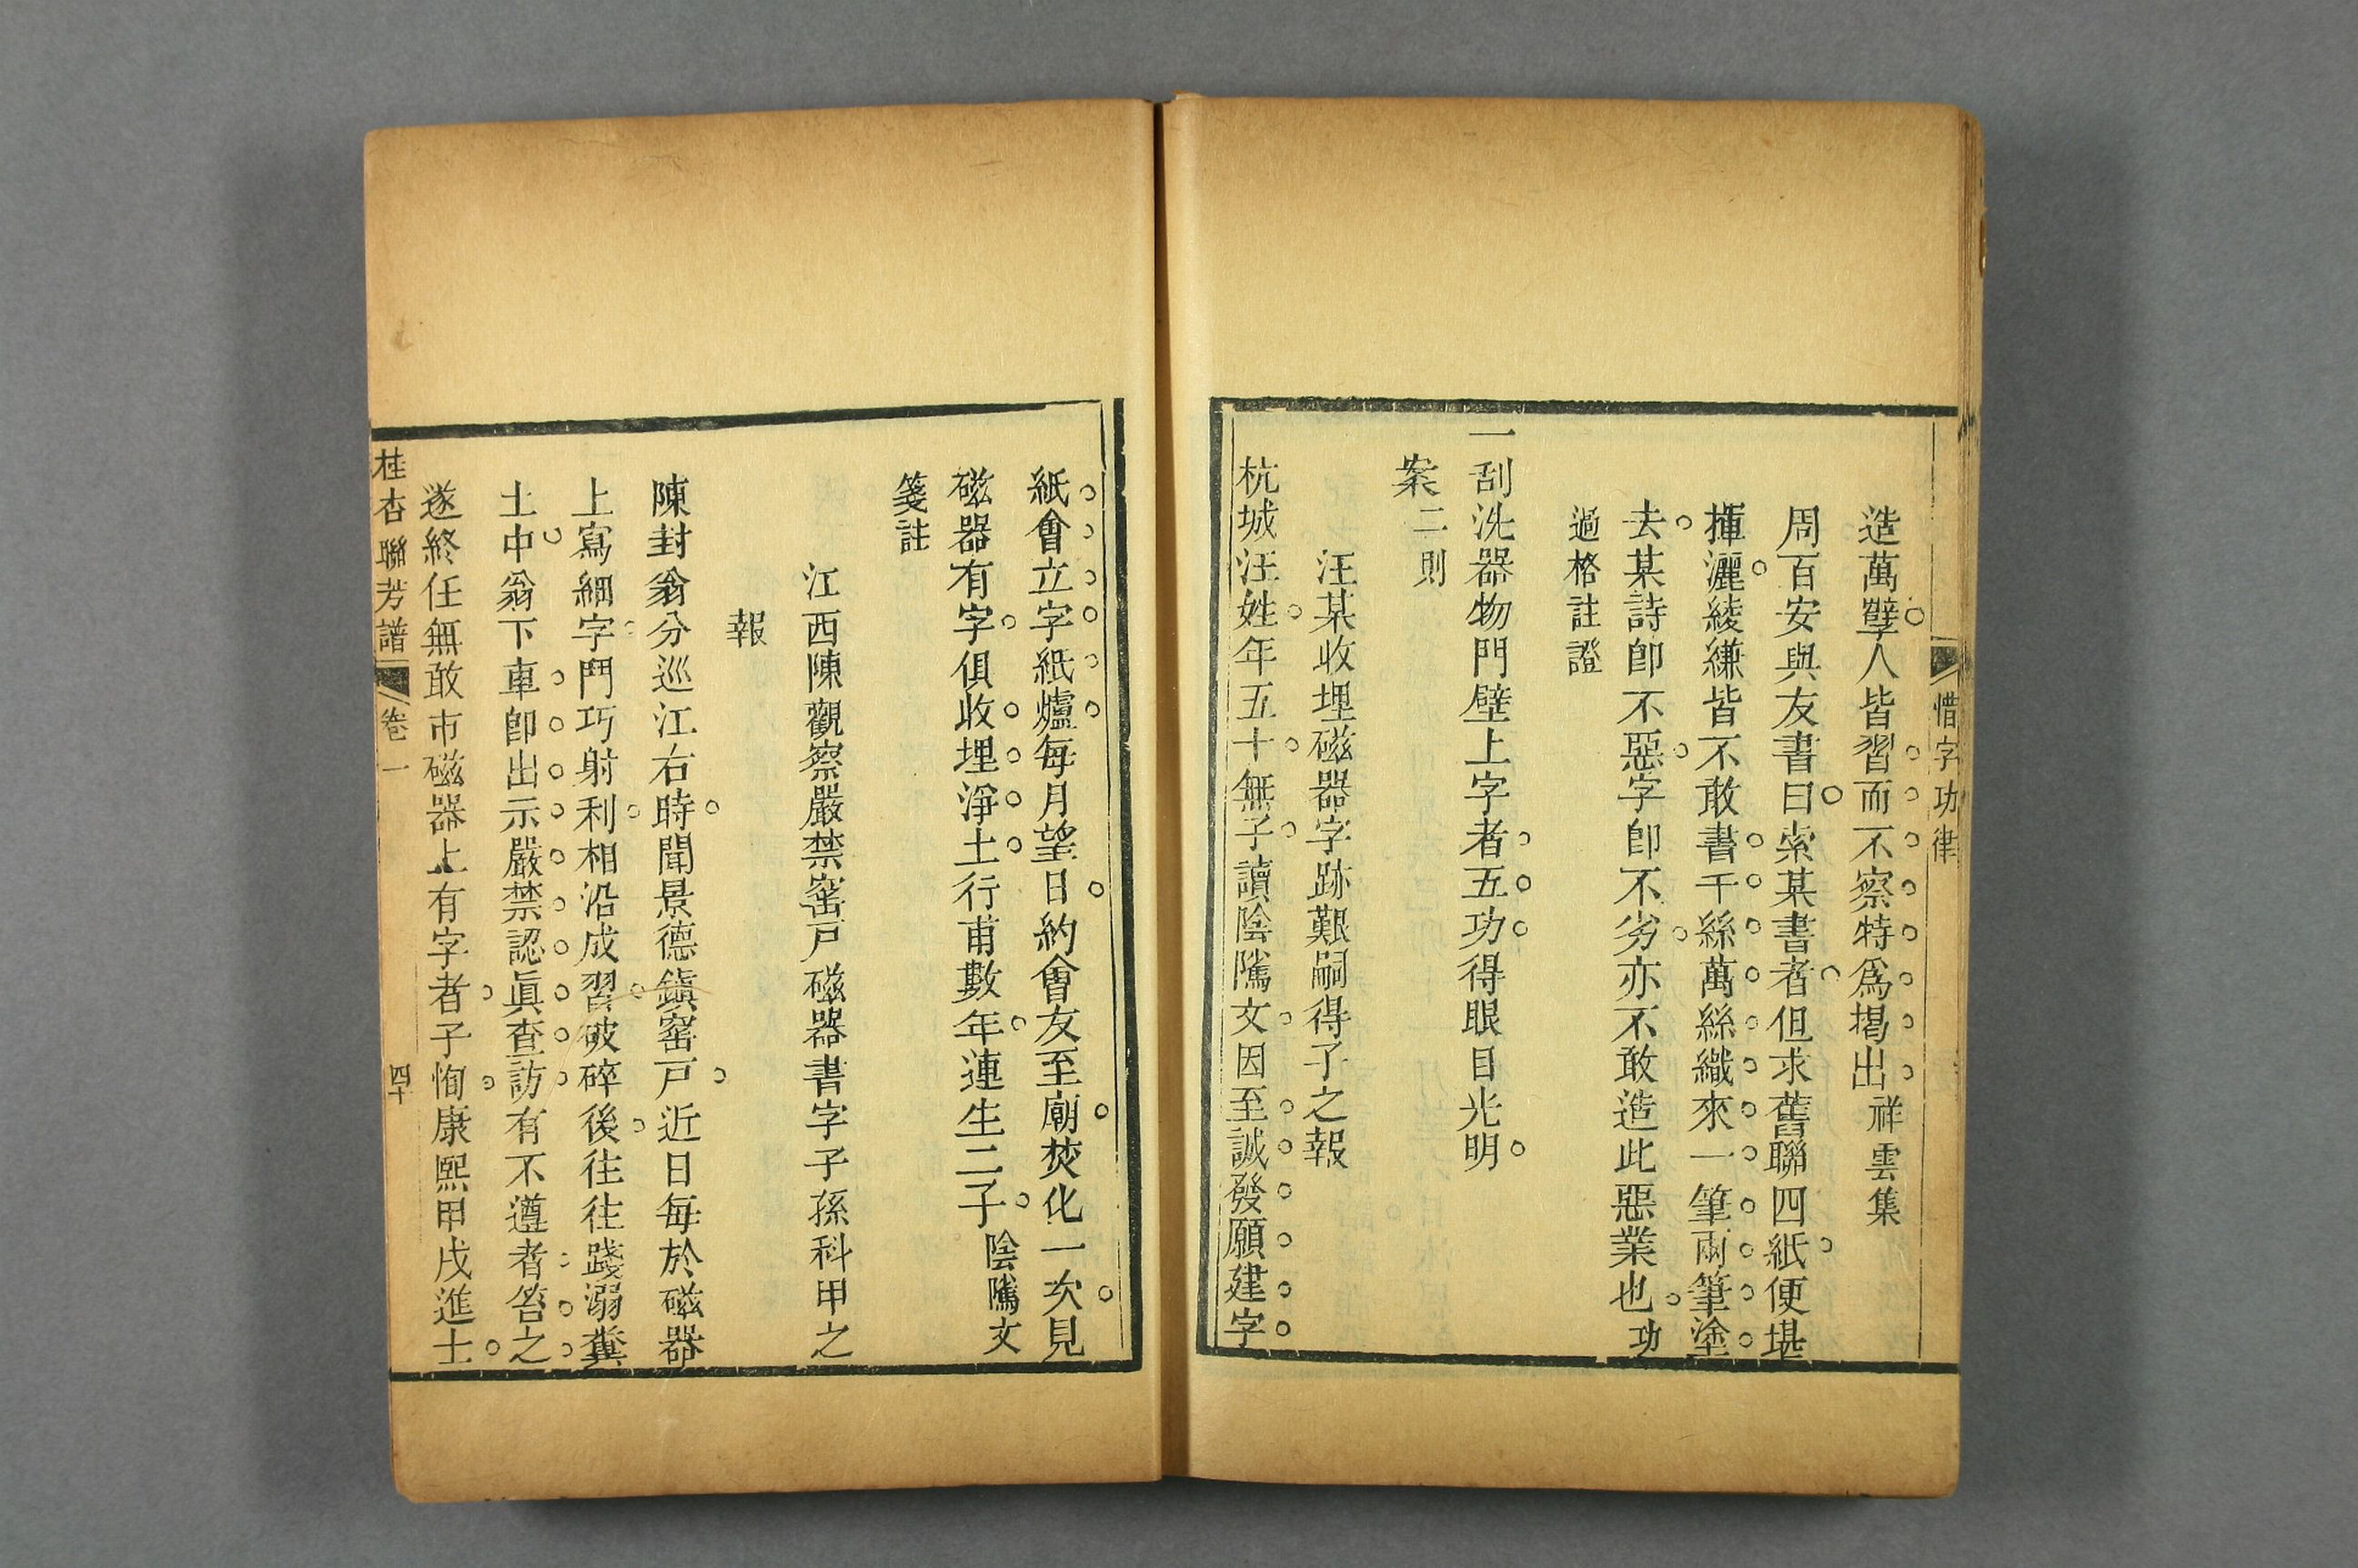 惜字功律
造萬孽人皆習而不察特爲揭出祥雲集
周百安與友書曰索某書者但求舊聯四紙便堪
揮灑綾縑皆不敢書千絲萬絲織來一筆兩筆塗
去某詩卽不惡字卽不劣亦不敢造此惡業也功
過格註證
一刮洗器物門壁上字者五功得眼目光明
案二則
汪某收埋磁器字跡艱嗣得子之報
杭城汪姓年五十無子讀陰隲文因至誠發願建字
紙會立字紙爐每月望日約會友至廟焚化一次見
磁器有字俱收埋淨土行甫數年連生二子陰隲文
箋註
江西陳觀察嚴禁窰戸磁器書字子孫科甲之
報
陳封翁分巡江右時聞景德鎭窰戸近日每於磁器
上寫細字鬥巧射利相沿成習破碎後往往踐溺糞
土中翁下車卽出示嚴禁認眞查訪有不遵者笞之
遂終任無敢市磁器上有字者子恂康熙甲戌進士
桂杏聯芳譜 卷一 四十